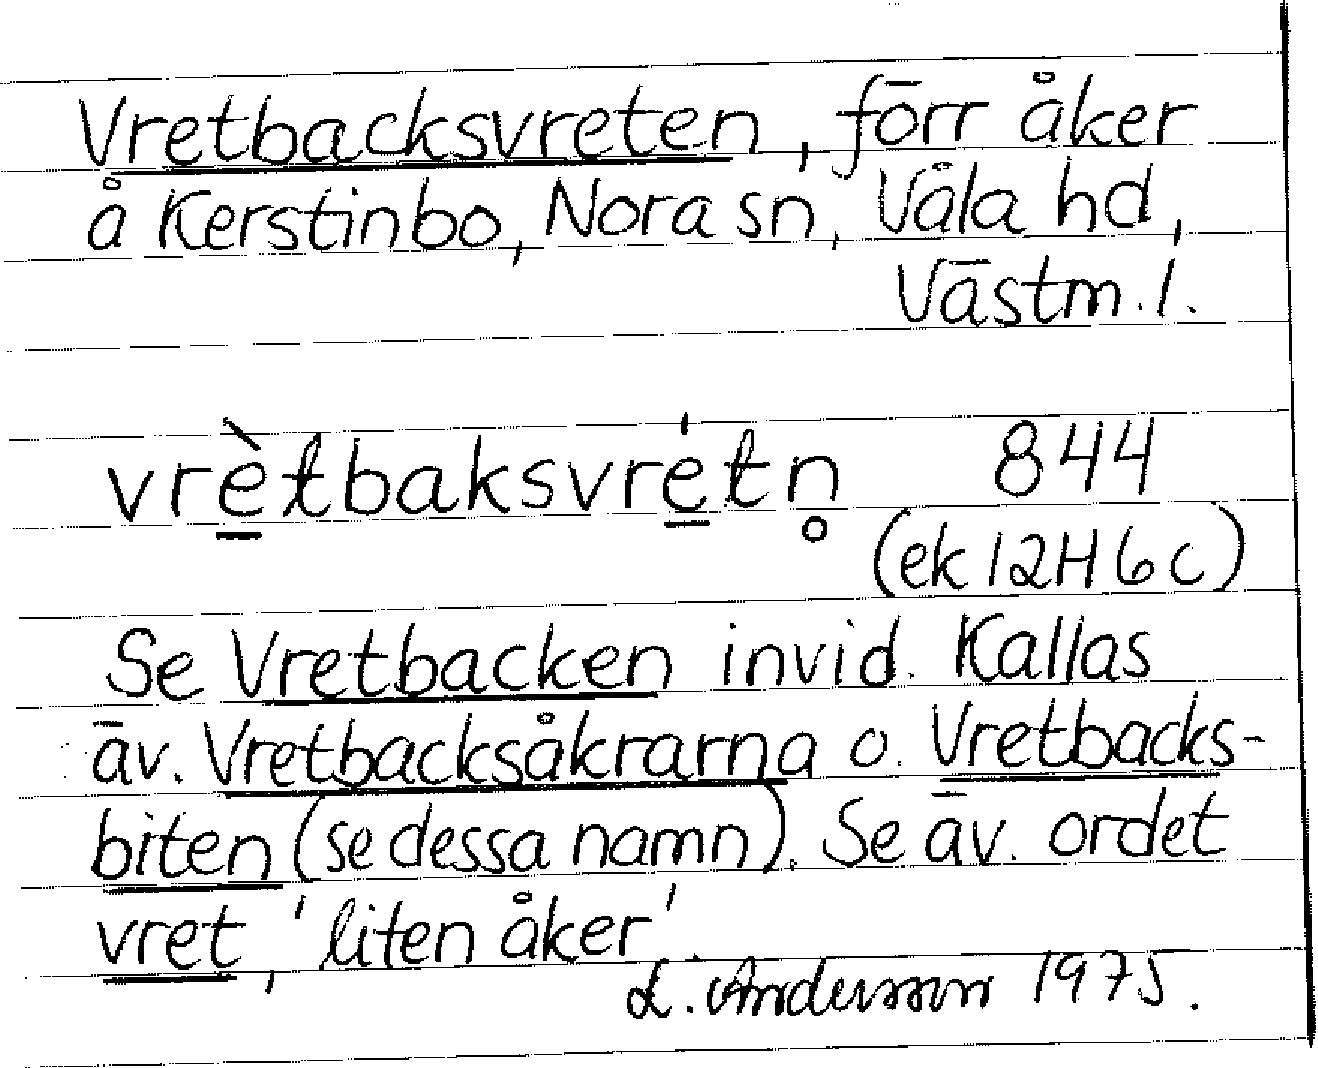 Vretbacksvreten, förr åker
å Kerstinbo, Nora sn, Våla hd,
Västm. l.
vrè̲tbaksvré̲tn̥ 844
(ek 12H6c)
Se Vretbacken invid. Kallas
äv. Vretbacksåkrarna o. Vretbacks-
biten (se dessa namn). Se äv. ordet
vret, 'liten åker'.
L. Andersson 1975.